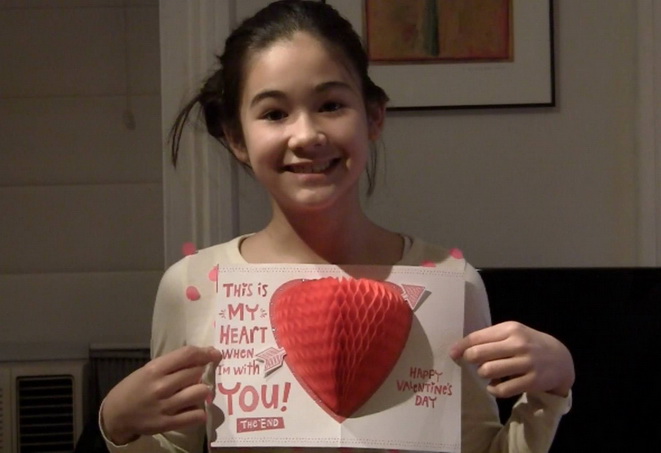 THIS iS
MY
HEART
WHEN
I'M WiTH
YOU!
THE END
HAPPY
VALENTINE'S
DAY